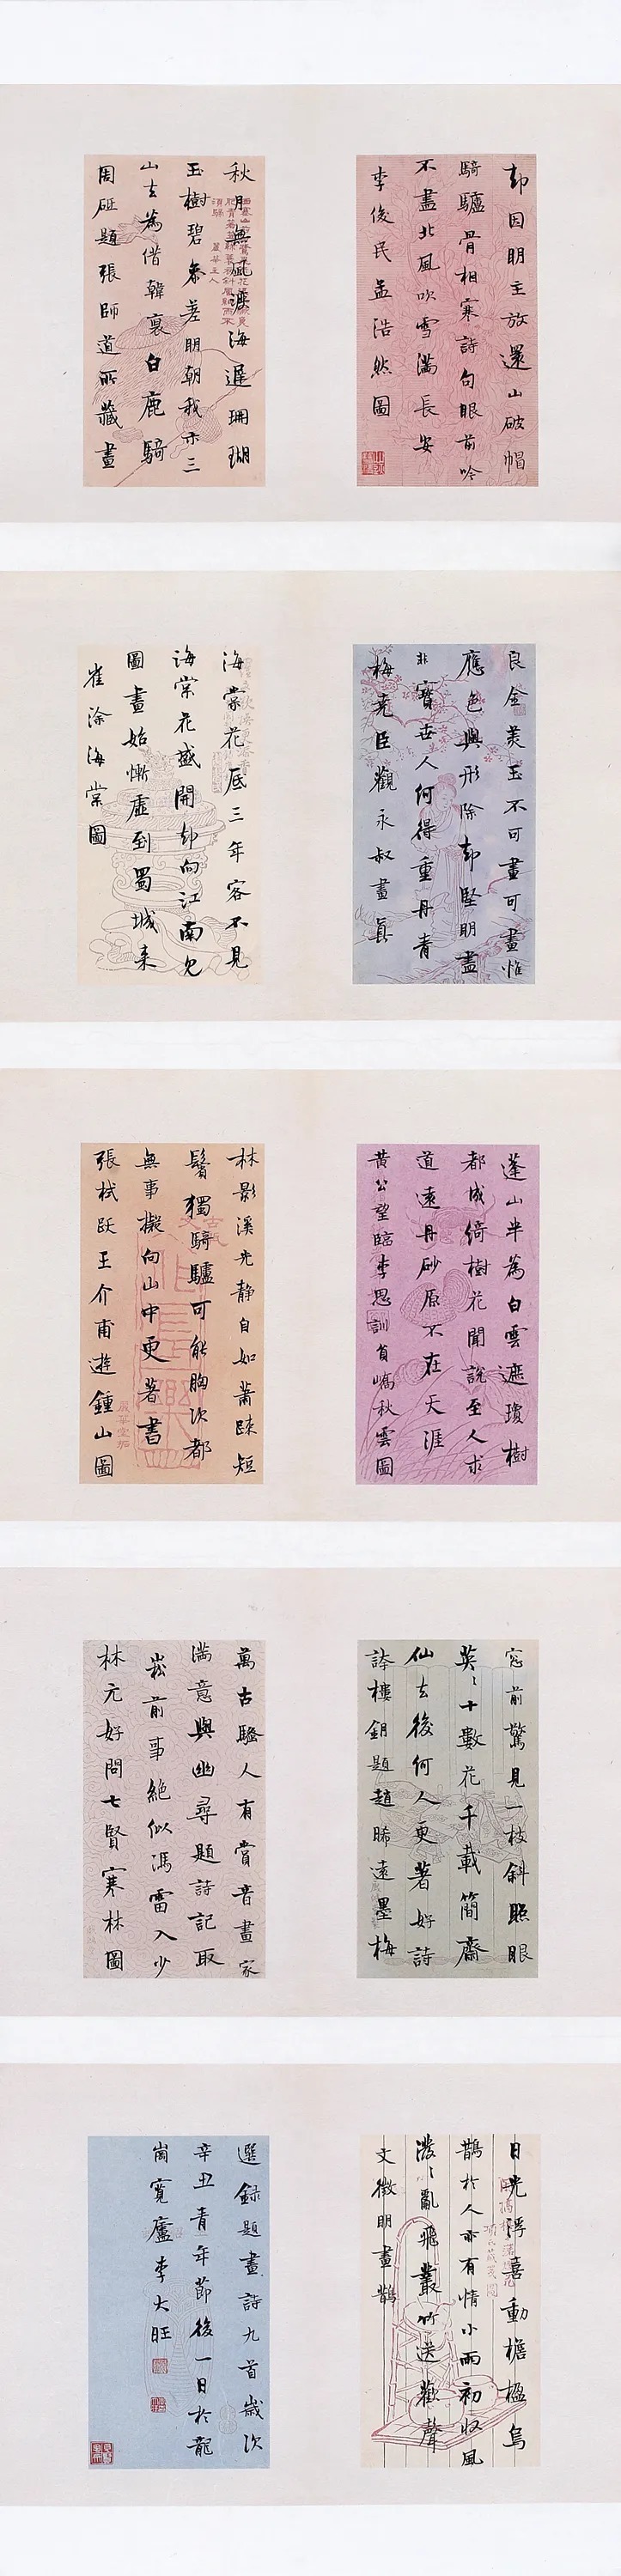 却因明主放還山破帽
騎驢骨相寒詩句眼前吟
不盡北風吹雪滿長安
李俊民孟浩然圖
秋月無風漲海遲珊瑚
玉樹碧參差明朝我亦三
山去為借韓裏白鹿騎
周砥題張師道所藏畫
良金美玉不可畫可畫惟
應色與形除却堅明盡
非寶世人何得重丹青
梅堯臣觀永叔畫真
海棠花底三年客不見
海棠花盛開却向江南見
圖畫始慚虛到蜀城來
崔涂海棠圖
蓬山半為白雲遮瓊樹
都成綺樹花聞說至人求
道遠丹砂原不在天涯
黃公望臨李思訓員嶠秋雲圖
林影溪光静自如蕭踈短
鬢獨騎驢可能胸次都
無事擬向山中更著書
張栻跋王介甫遊鍾山圖
窓前驚見一枝斜照眼
英々十數花千載簡齋
仙去後何人更著好詩
誇樓鈅題趙晞遠墨梅
萬古騷人有賞音畫家
滿意與幽尋題詩記取
崧前事絶似馮雷入少
林元好問七賢寒林圖
日光浮喜動檐楹烏
鵲於人亦有情小雨初收風
潑々亂飛叢竹送歡聲
文徵明畫鵲
選録題畫詩九首歲次
辛丑青年節後一日於龍
崗寬廬李大旺